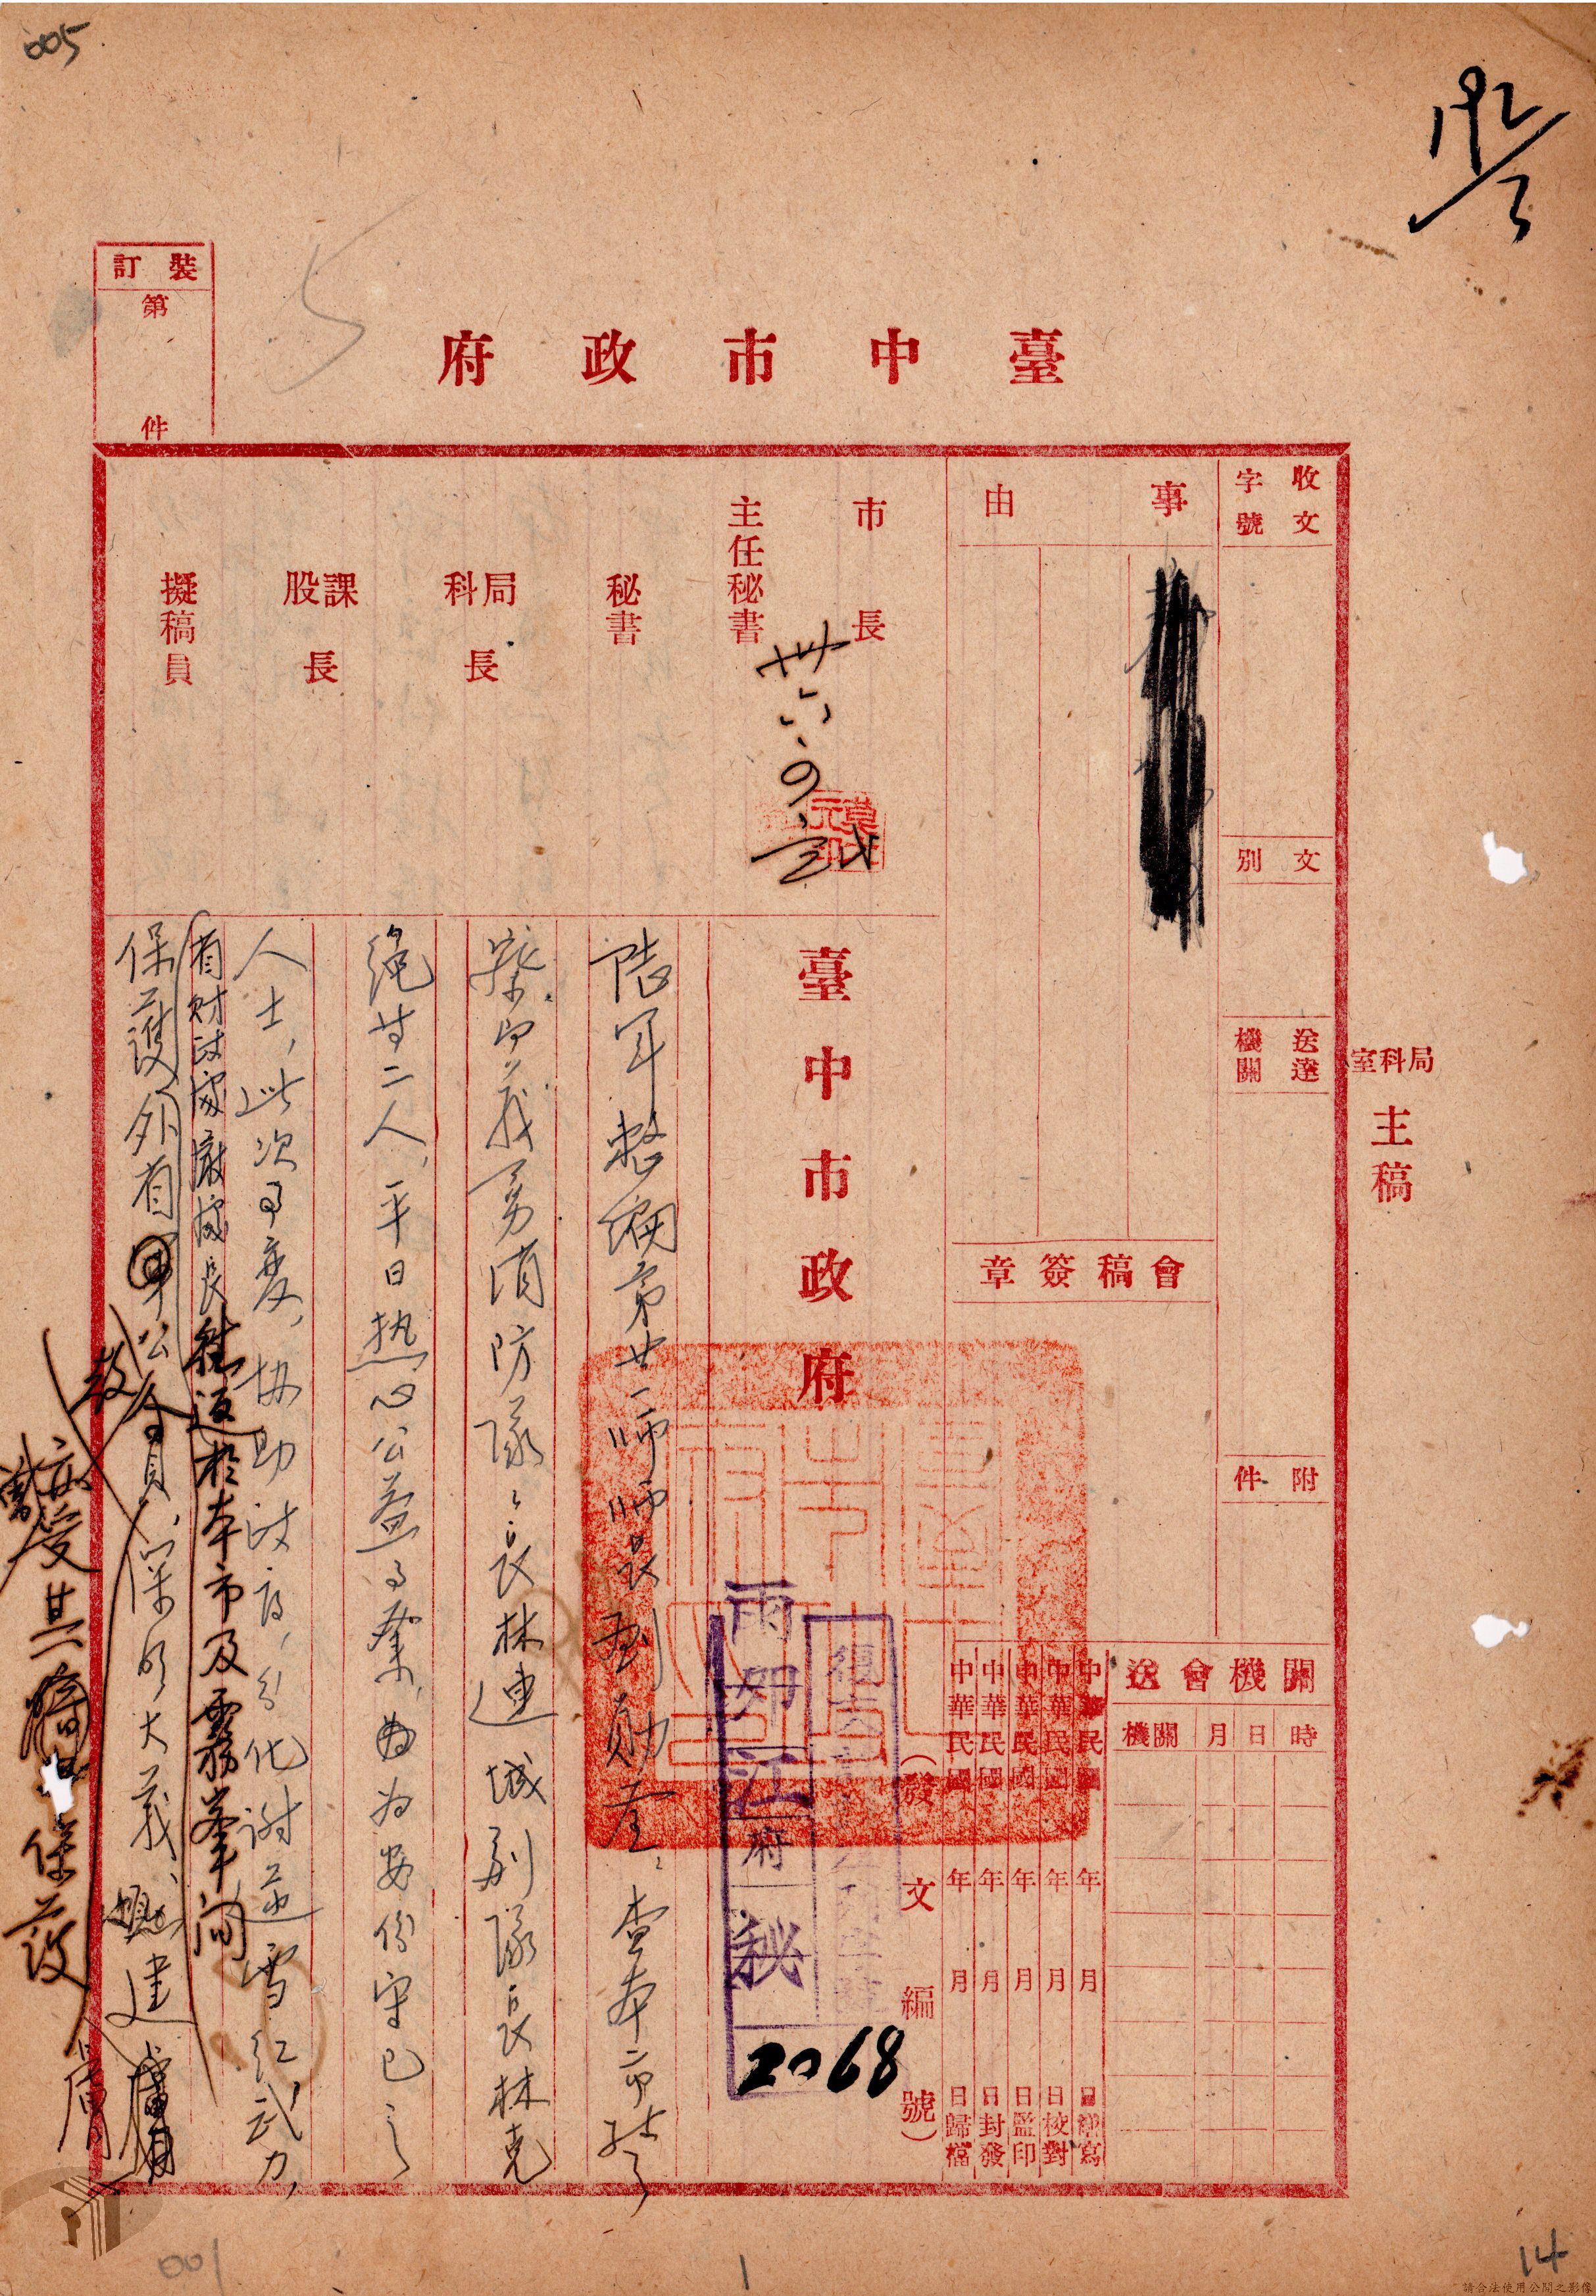 005
192/3
5
裝訂
第
件
臺中市政府
收文
字號
文別
送達
機關
附件
局科室
主稿
事由
會稿簽章
關機會送
時日月關機
中華民國 年 月 日繕寫
中華民國 年 月 日校對
中華民國 年 月 日監印
中華民國 年 月 日封發
中華民國 年 月 日歸檔
(發文編號)
2068
府
秘
市長
主任秘書
秘書
局科長
課股長
擬稿員
卅六
臺中市政府
陸軍整編第廿一師師長劉勛鑒、查本市警
察局義勇消防隊隊長林連城副隊長林克
繩廿二人,平日熱心公益事業,為安份守己之
人士,此次事變,協助政府,分化謝逆雪紅武力,
省財政處嚴處長
於本市及霧峯間
保護外省公教人員,深明大義、
受其 保護
001
1
14
請合法使用公開之影像